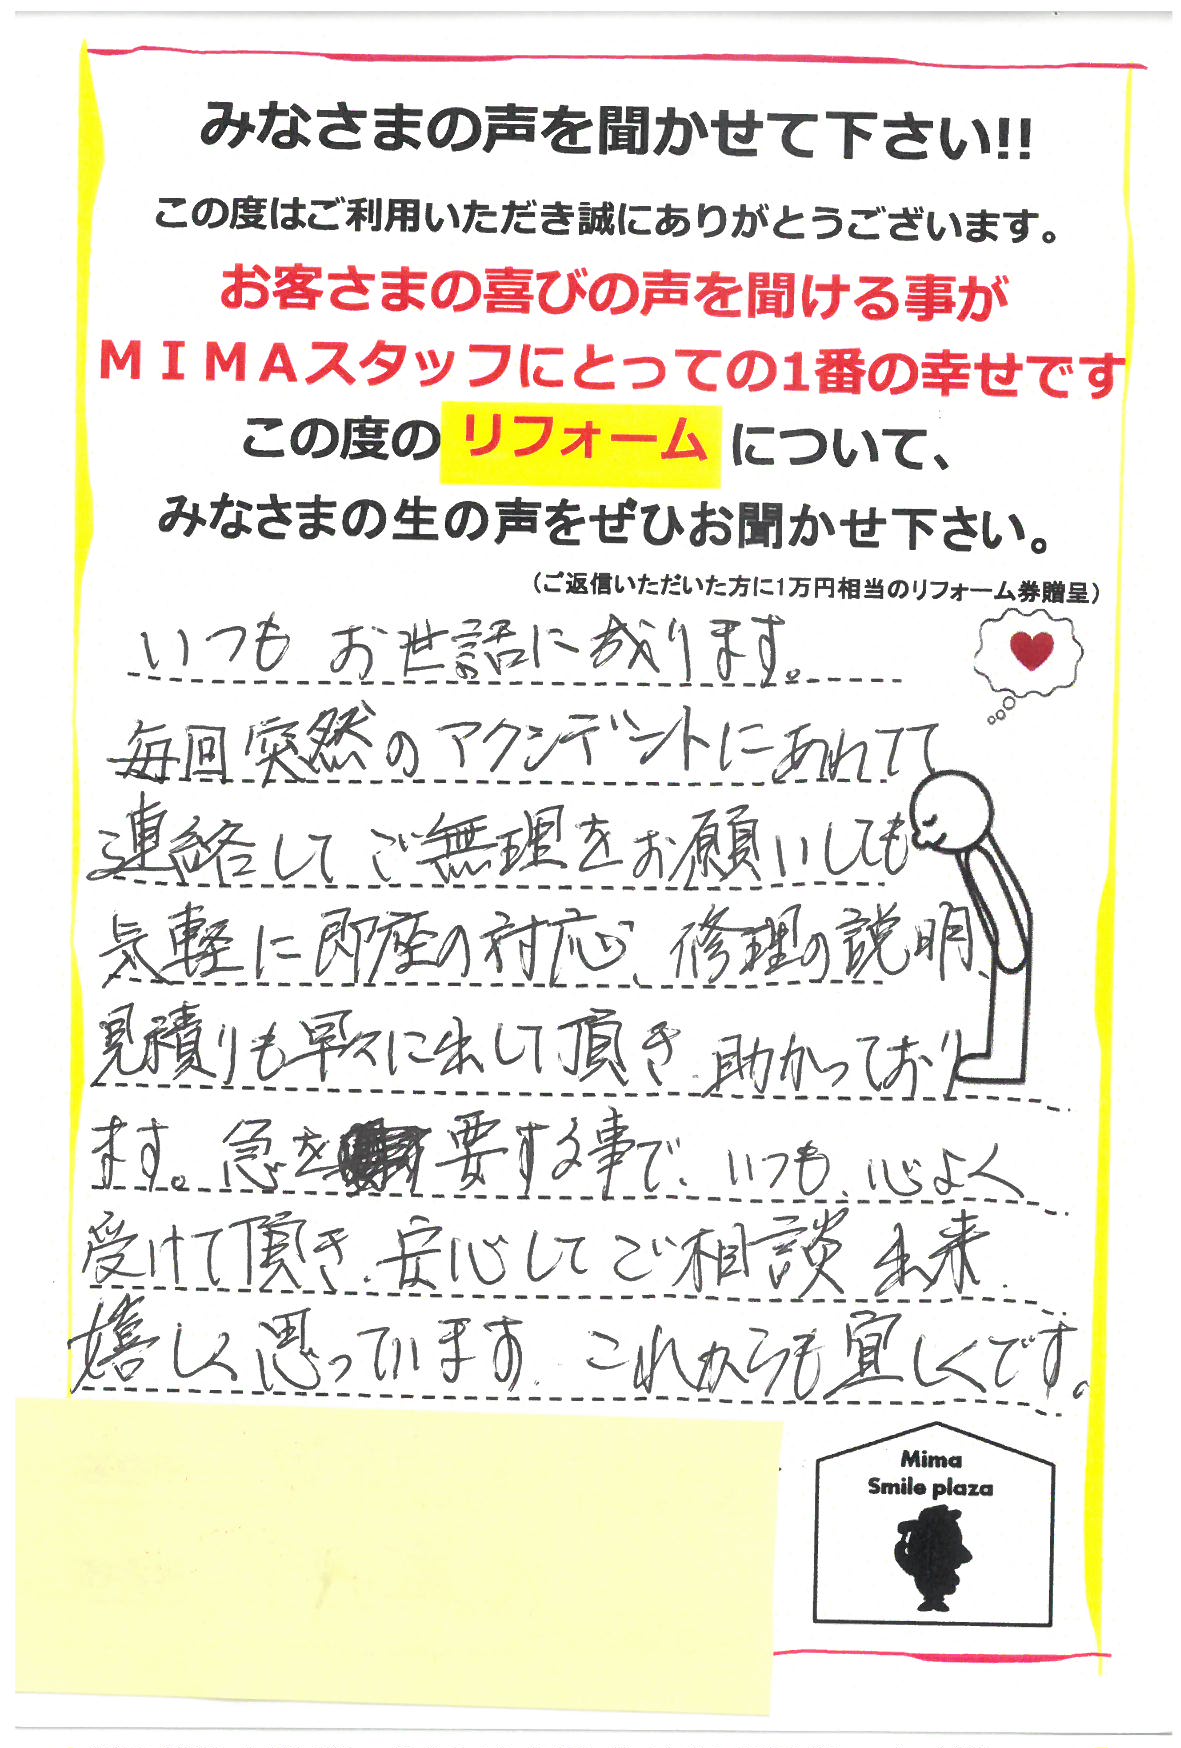 みなさまの声を聞かせて下さい!!
この度はご利用いただき誠にありがとうございます。
お客さまの喜びの声を聞ける事が
MIMAスタッフにとっての1番の幸せです
この度の リフォーム について、
みなさまの生の声をぜひお聞かせ下さい。
(ご返信いただいた方に1万円相当のリフォーム券贈呈)
いつもお世話に成ります。
毎回突然のアクシデントにあわてて
連絡してご無理をお願いしても
気軽に即座の対応、修理の説明、
見積りも早々に出して頂き、助かっており
ます。急を要する事で、いつも、心よく
受けて頂き、安心してご相談出来、
嬉しく思っています。これからも宜しくです。
Mima
Smile plaza